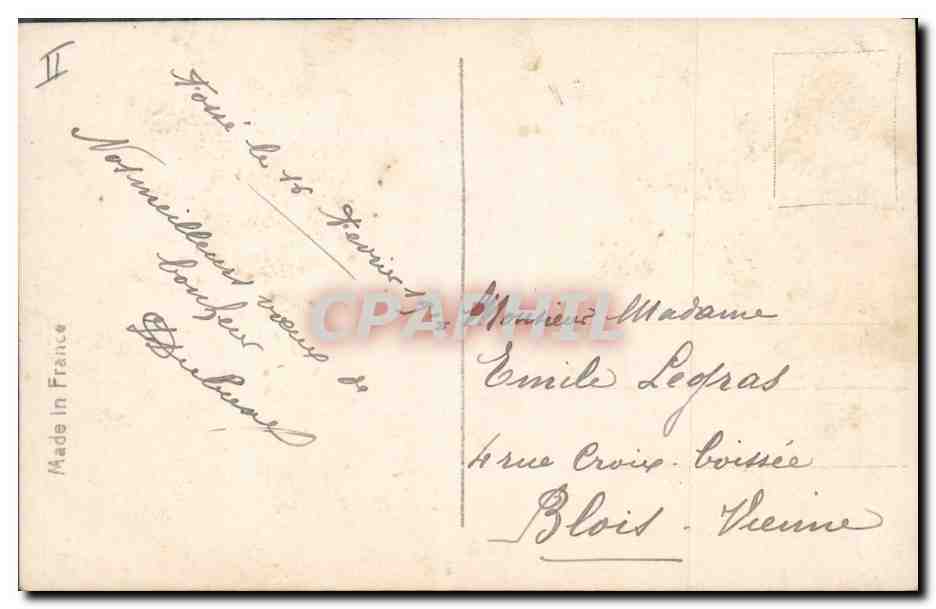 II
Fossé le 16 Fevrier
Nos meilleurs vœux de
bonheur
Made in France
CPAPHIL
Monsieur Madame
Emile Legras
4 rue Croix-boissée
Blois - Vienne